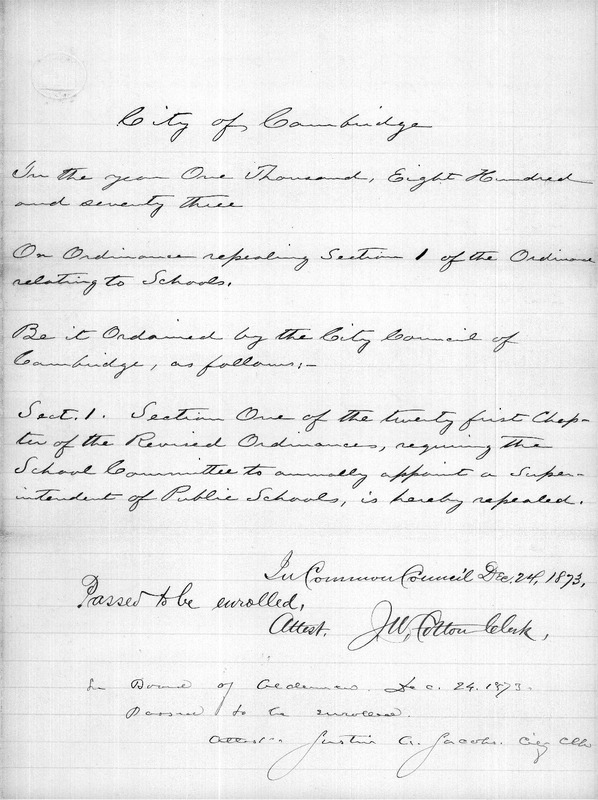 City of Cambridge
In the year One Thousand, Eight Hundred
and seventy three
An Ordinance repealing Section 1 of the Ordinance
relating to Schools.
Be it Ordained by the City Council of
Cambridge, as follows:-
Sect. 1. Section One of the twenty first Chap-
ter of the Revised Ordinances, requiring the
School Committee to annually appoint a Super-
intendent of Public Schools, is hereby repealed.
In Common Council Dec. 24, 1873,
Passed to be enrolled,
Attest. J.W. Cotton Clerk,
In Board of Aldermen. Dec. 24. 1873.
Passed to be enrolled.
Attest:- Justin A. Jacobs. City Clk